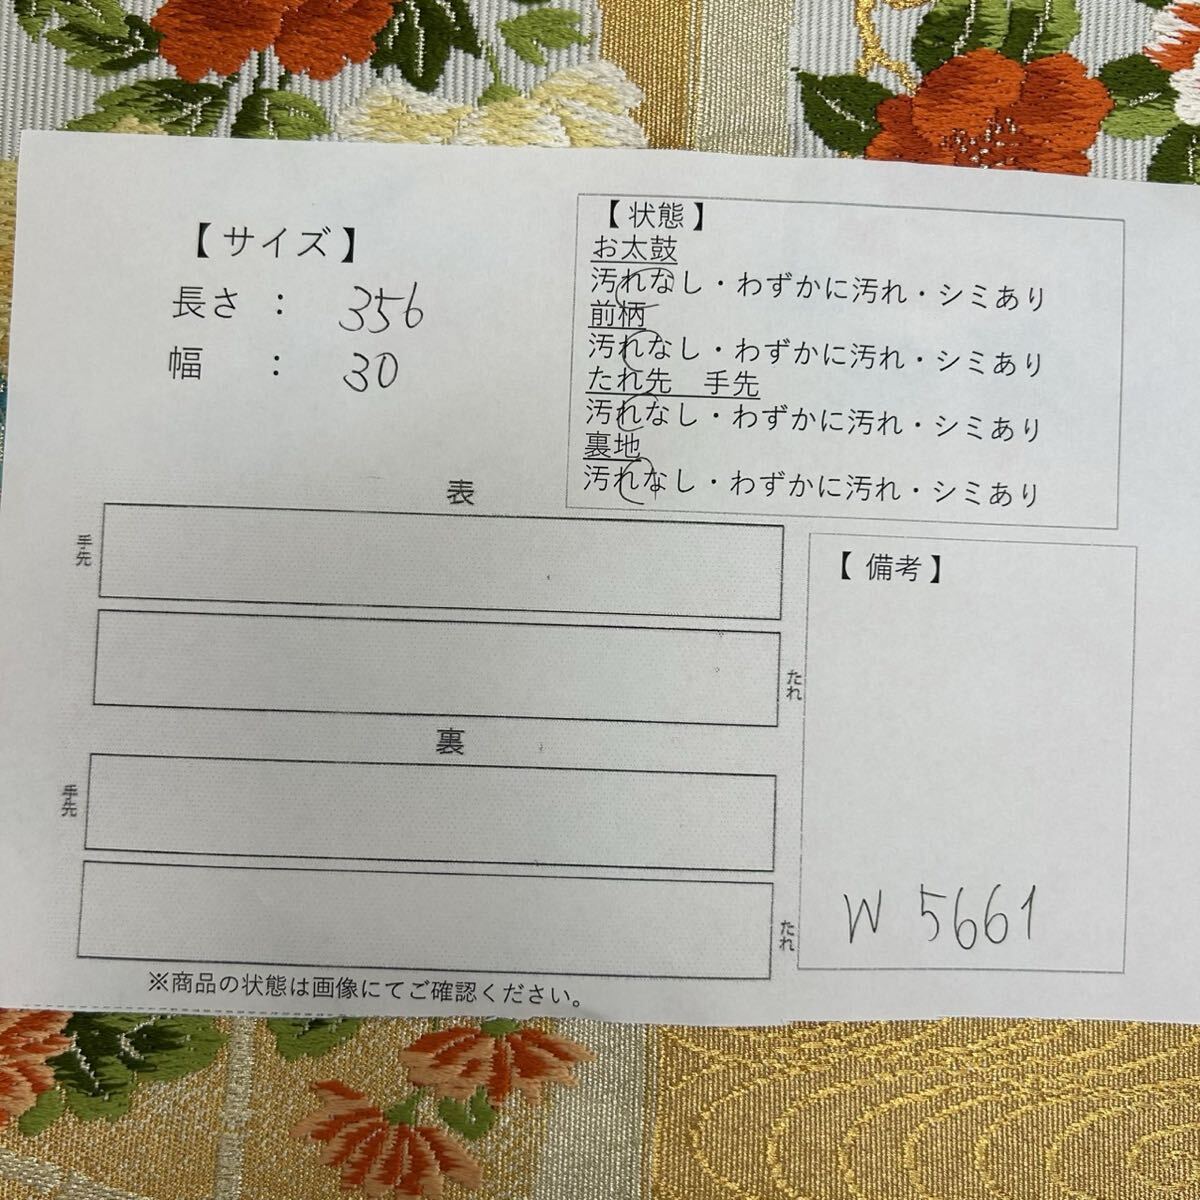 【サイズ】
長さ : 356
幅 : 30
【状態】
お太鼓
汚れなし・わずかに汚れ・シミあり
前柄
汚れなし・わずかに汚れ・シミあり
たれ先 手先
汚れなし・わずかに汚れ・シミあり
裏地
汚れなし・わずかに汚れ・シミあり
表
手先
たれ
裏
手先
たれ
【備考】
W 5661
※商品の状態は画像にてご確認ください。